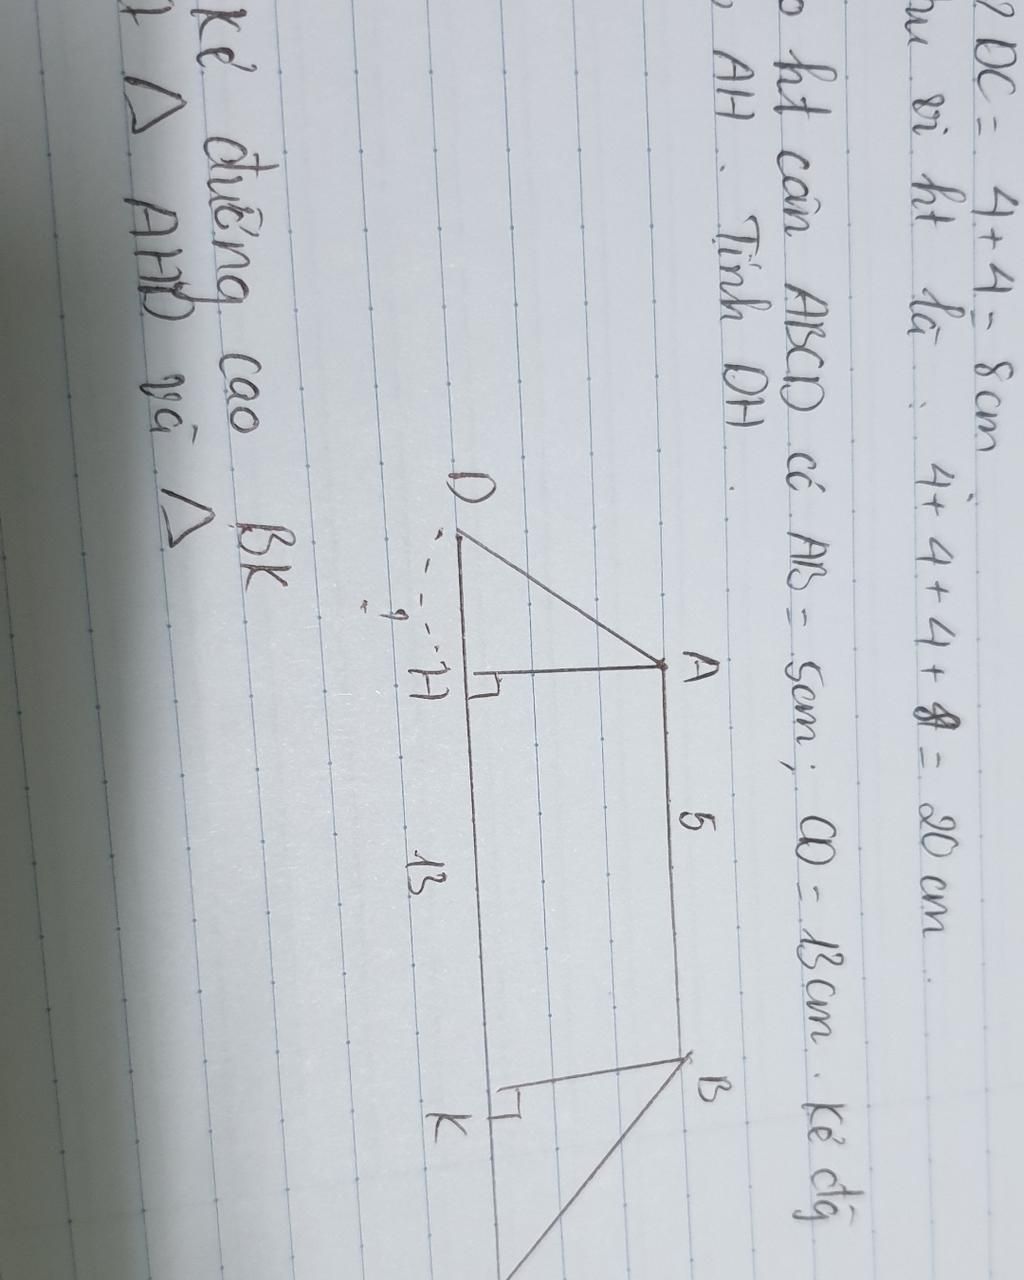 DC = 4 + 4 = 8cm
vi ht là : 4 + 4 + 4 + 8 = 20 cm.
ht cân ABCD có AB = 5cm ; CD = 13cm . Kẻ đg
AH . Tính DH .
A 5 B
D H 13 K
Kẻ đường cao BK
Δ AHD và Δ